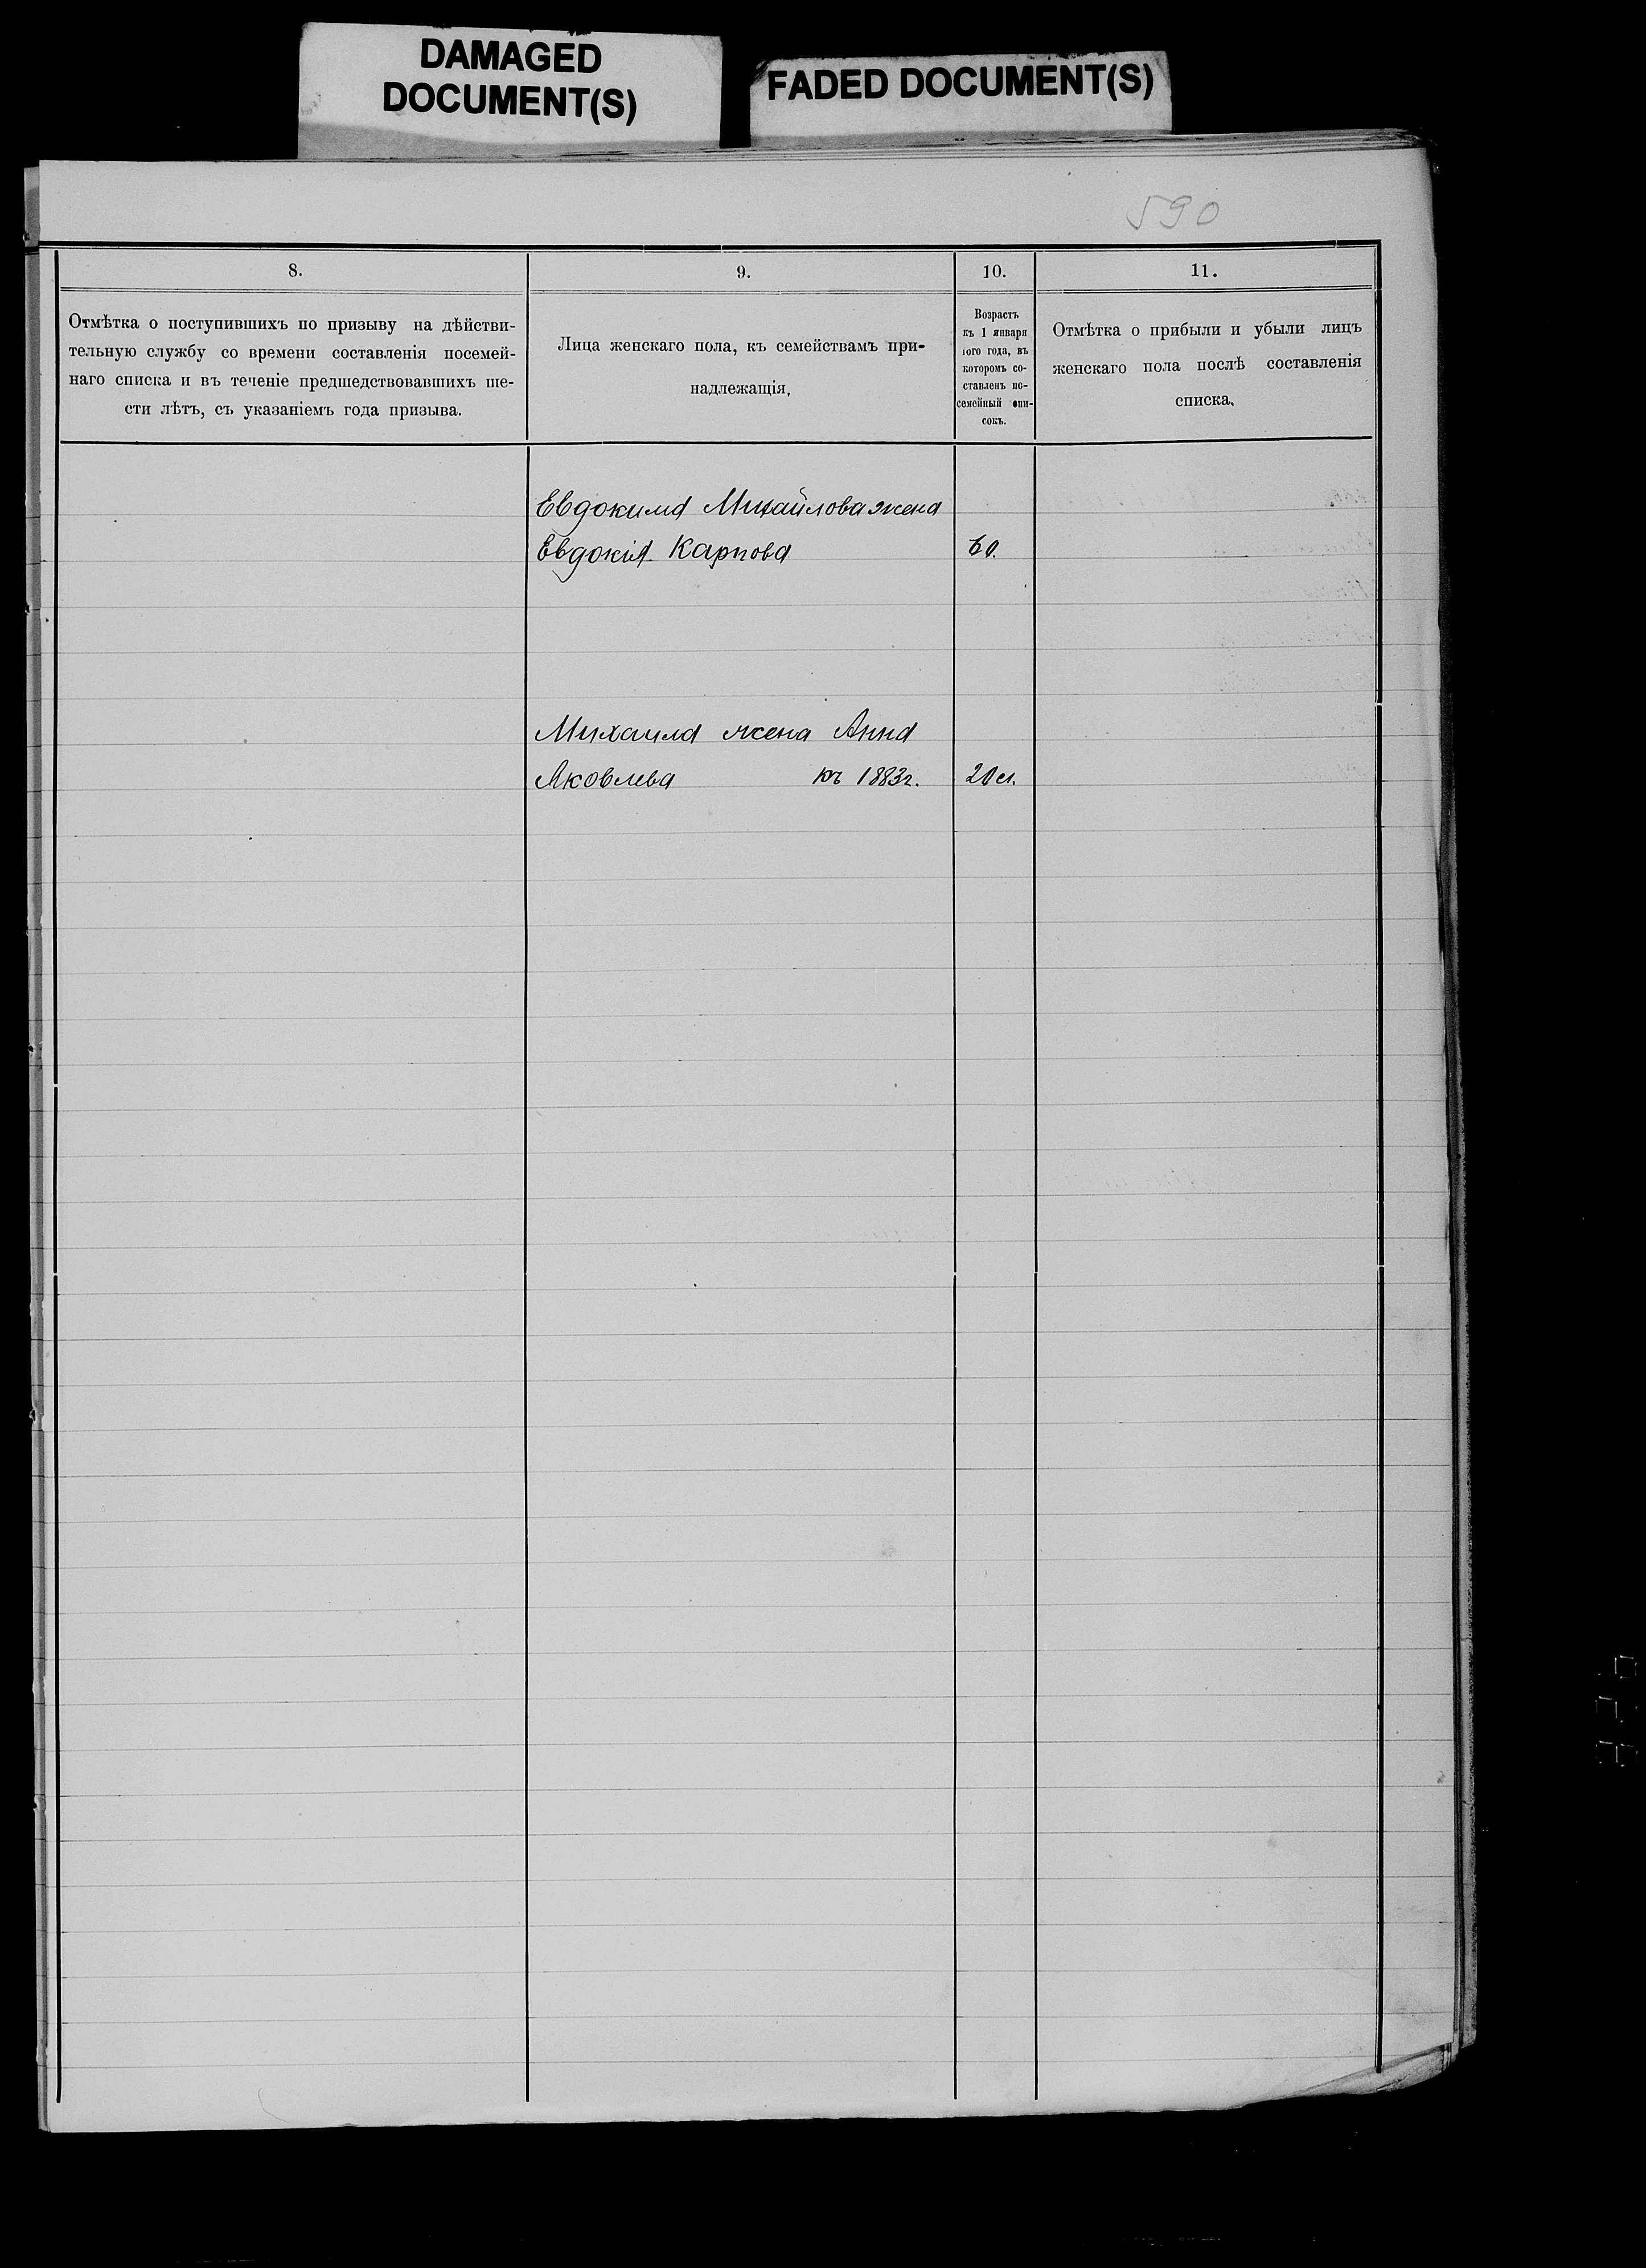 DAMAGED
DOCUMENT(S)
FADED DOCUMENT(S)
590
8.
9.
10.
11.
Отмѣтка о поступившихъ по призыву на дѣйстви-
тельную службу со времени составленія посемей-
наго списка и въ теченіе предшедствовавшихъ ше-
сти лѣтъ, съ указаніемъ года призыва.
Лица женскаго пола, къ семействамъ при-
надлежащія,
Возрастъ
къ 1 января
того года, въ
которомъ со-
ставленъ по-
семейный спи-
сокъ.
Отмѣтка о прибыли и убыли лицъ
женскаго пола послѣ составленія
списка.
Евдокима Михайлова жена
Евдокія Карпова 60.
Михаила жена Анна
Яковлева къ 1883г. 20 л.